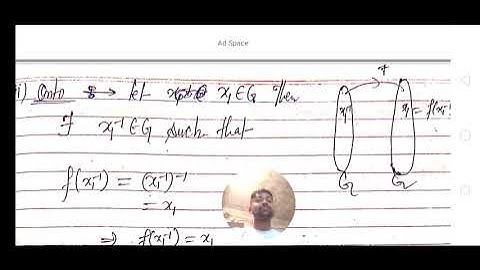 Ad Space
ii) Onto :→ let x₁ ∈ G then
∃ x₁⁻¹ ∈ G such that
f(x₁⁻¹) = (x₁⁻¹)⁻¹
= x₁
⇒ f(x₁⁻¹) = x₁
f
x₁⁻¹
x₁ = f(x₁⁻¹)
G
G